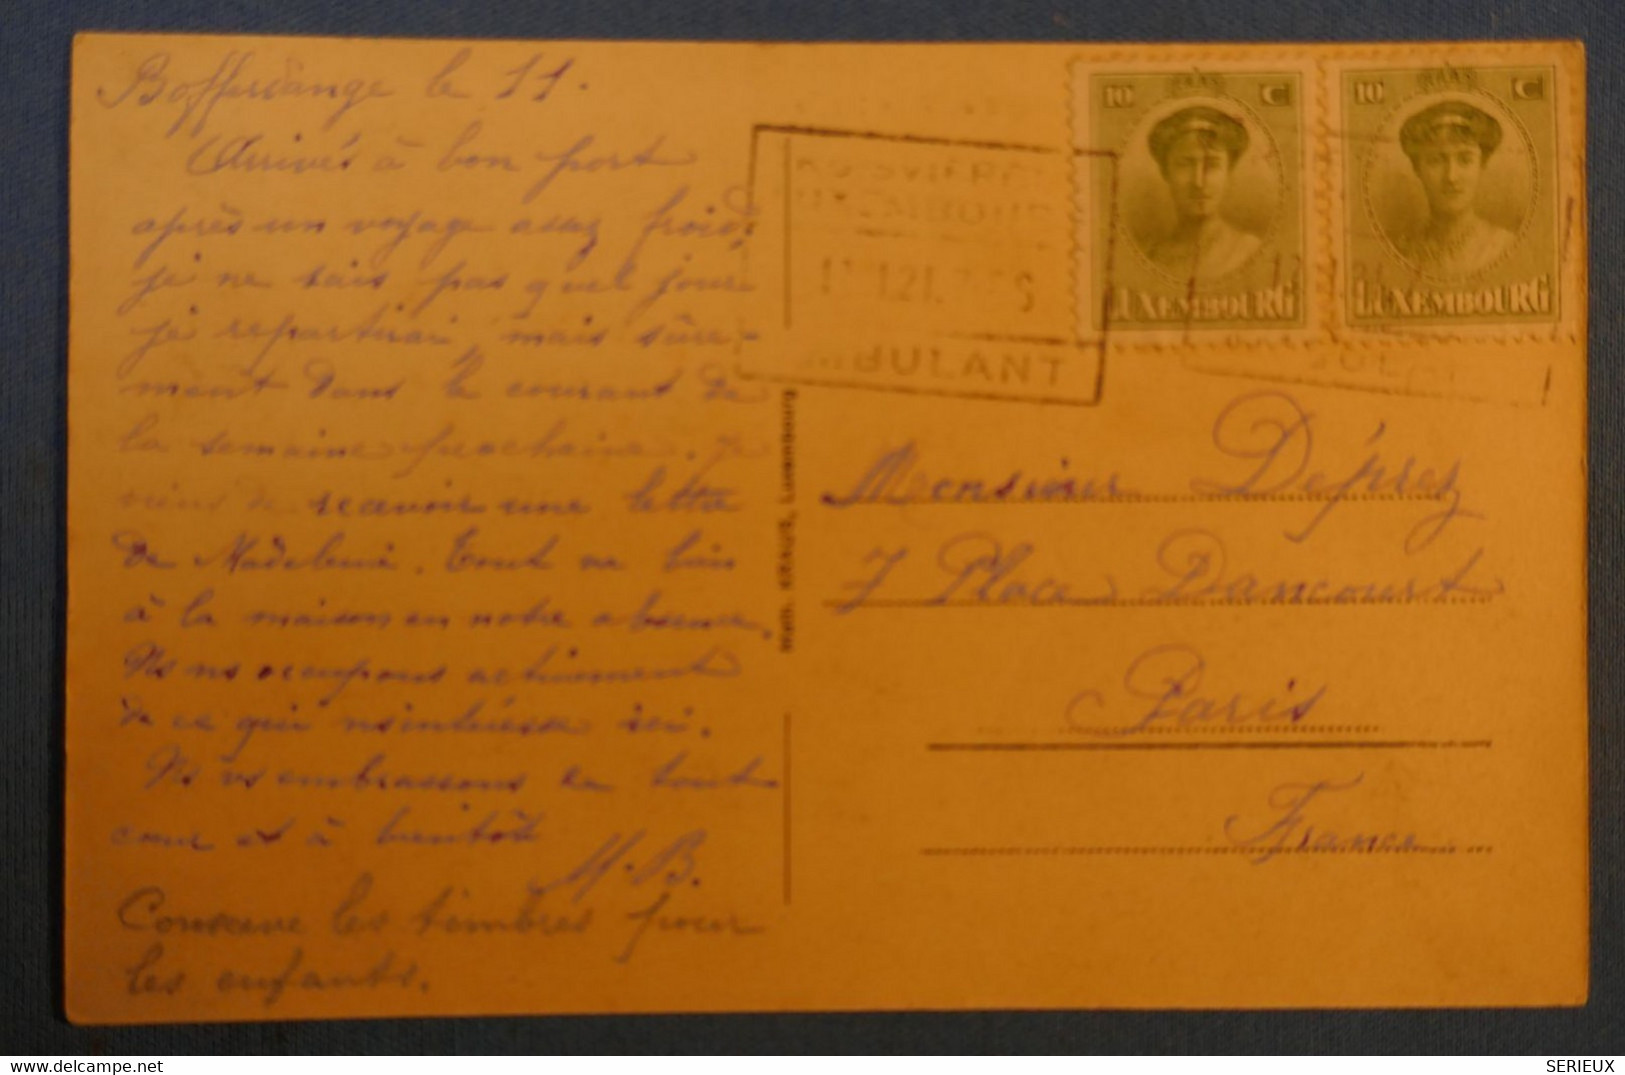 Bofferdange le 11.
Arrivés à bon port
après un voyage assez froid,
je ne sais pas quel jour
je repartirai, mais sûre-
ment dans le courant de
la semaine prochaine. Je
viens de recevoir une lettre
de Madeleine. Tout va bien
à la maison en notre absence.
Ns ns occupons activement
de ce qui ns intéresse ici.
Ns vs embrassons en tout
cœur et à bientôt
M.B.
Conserve les timbres pour
les enfants.
Luxembourg
10 C
LUXEMBOURG
10 C
LUXEMBOURG
BULANT
Monsieur Déprez
7 Place Dancourt
Paris
France
SERIEUX